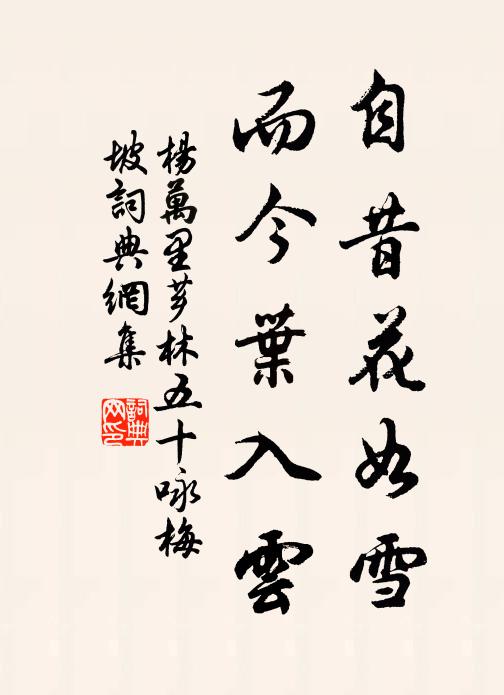 自昔花如雪
而今葉入雲
楊萬里薌林五十咏梅
坡詞典網集
詞典網印